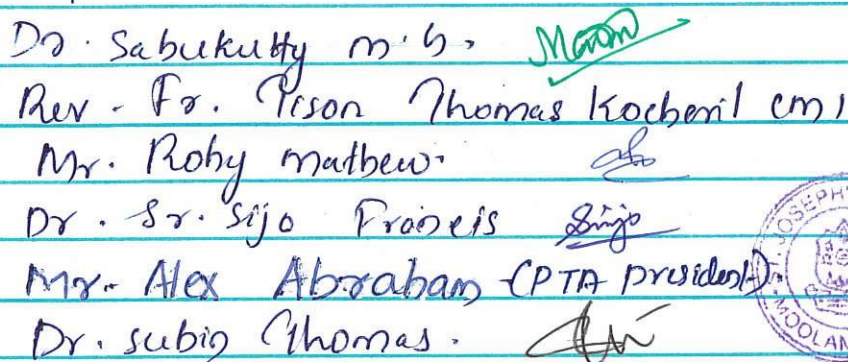 Dr. Sabukutty M.G.
Rev. Fr. Thomas Kocheril CMI
Mr. Roby Mathew.
Dr. Sr. Sijo Francis Sinjo
Mr. Alex Abraham (PTA President).
Dr. Subin Thomas.
ST. JOSEPH'S
MOOLAM